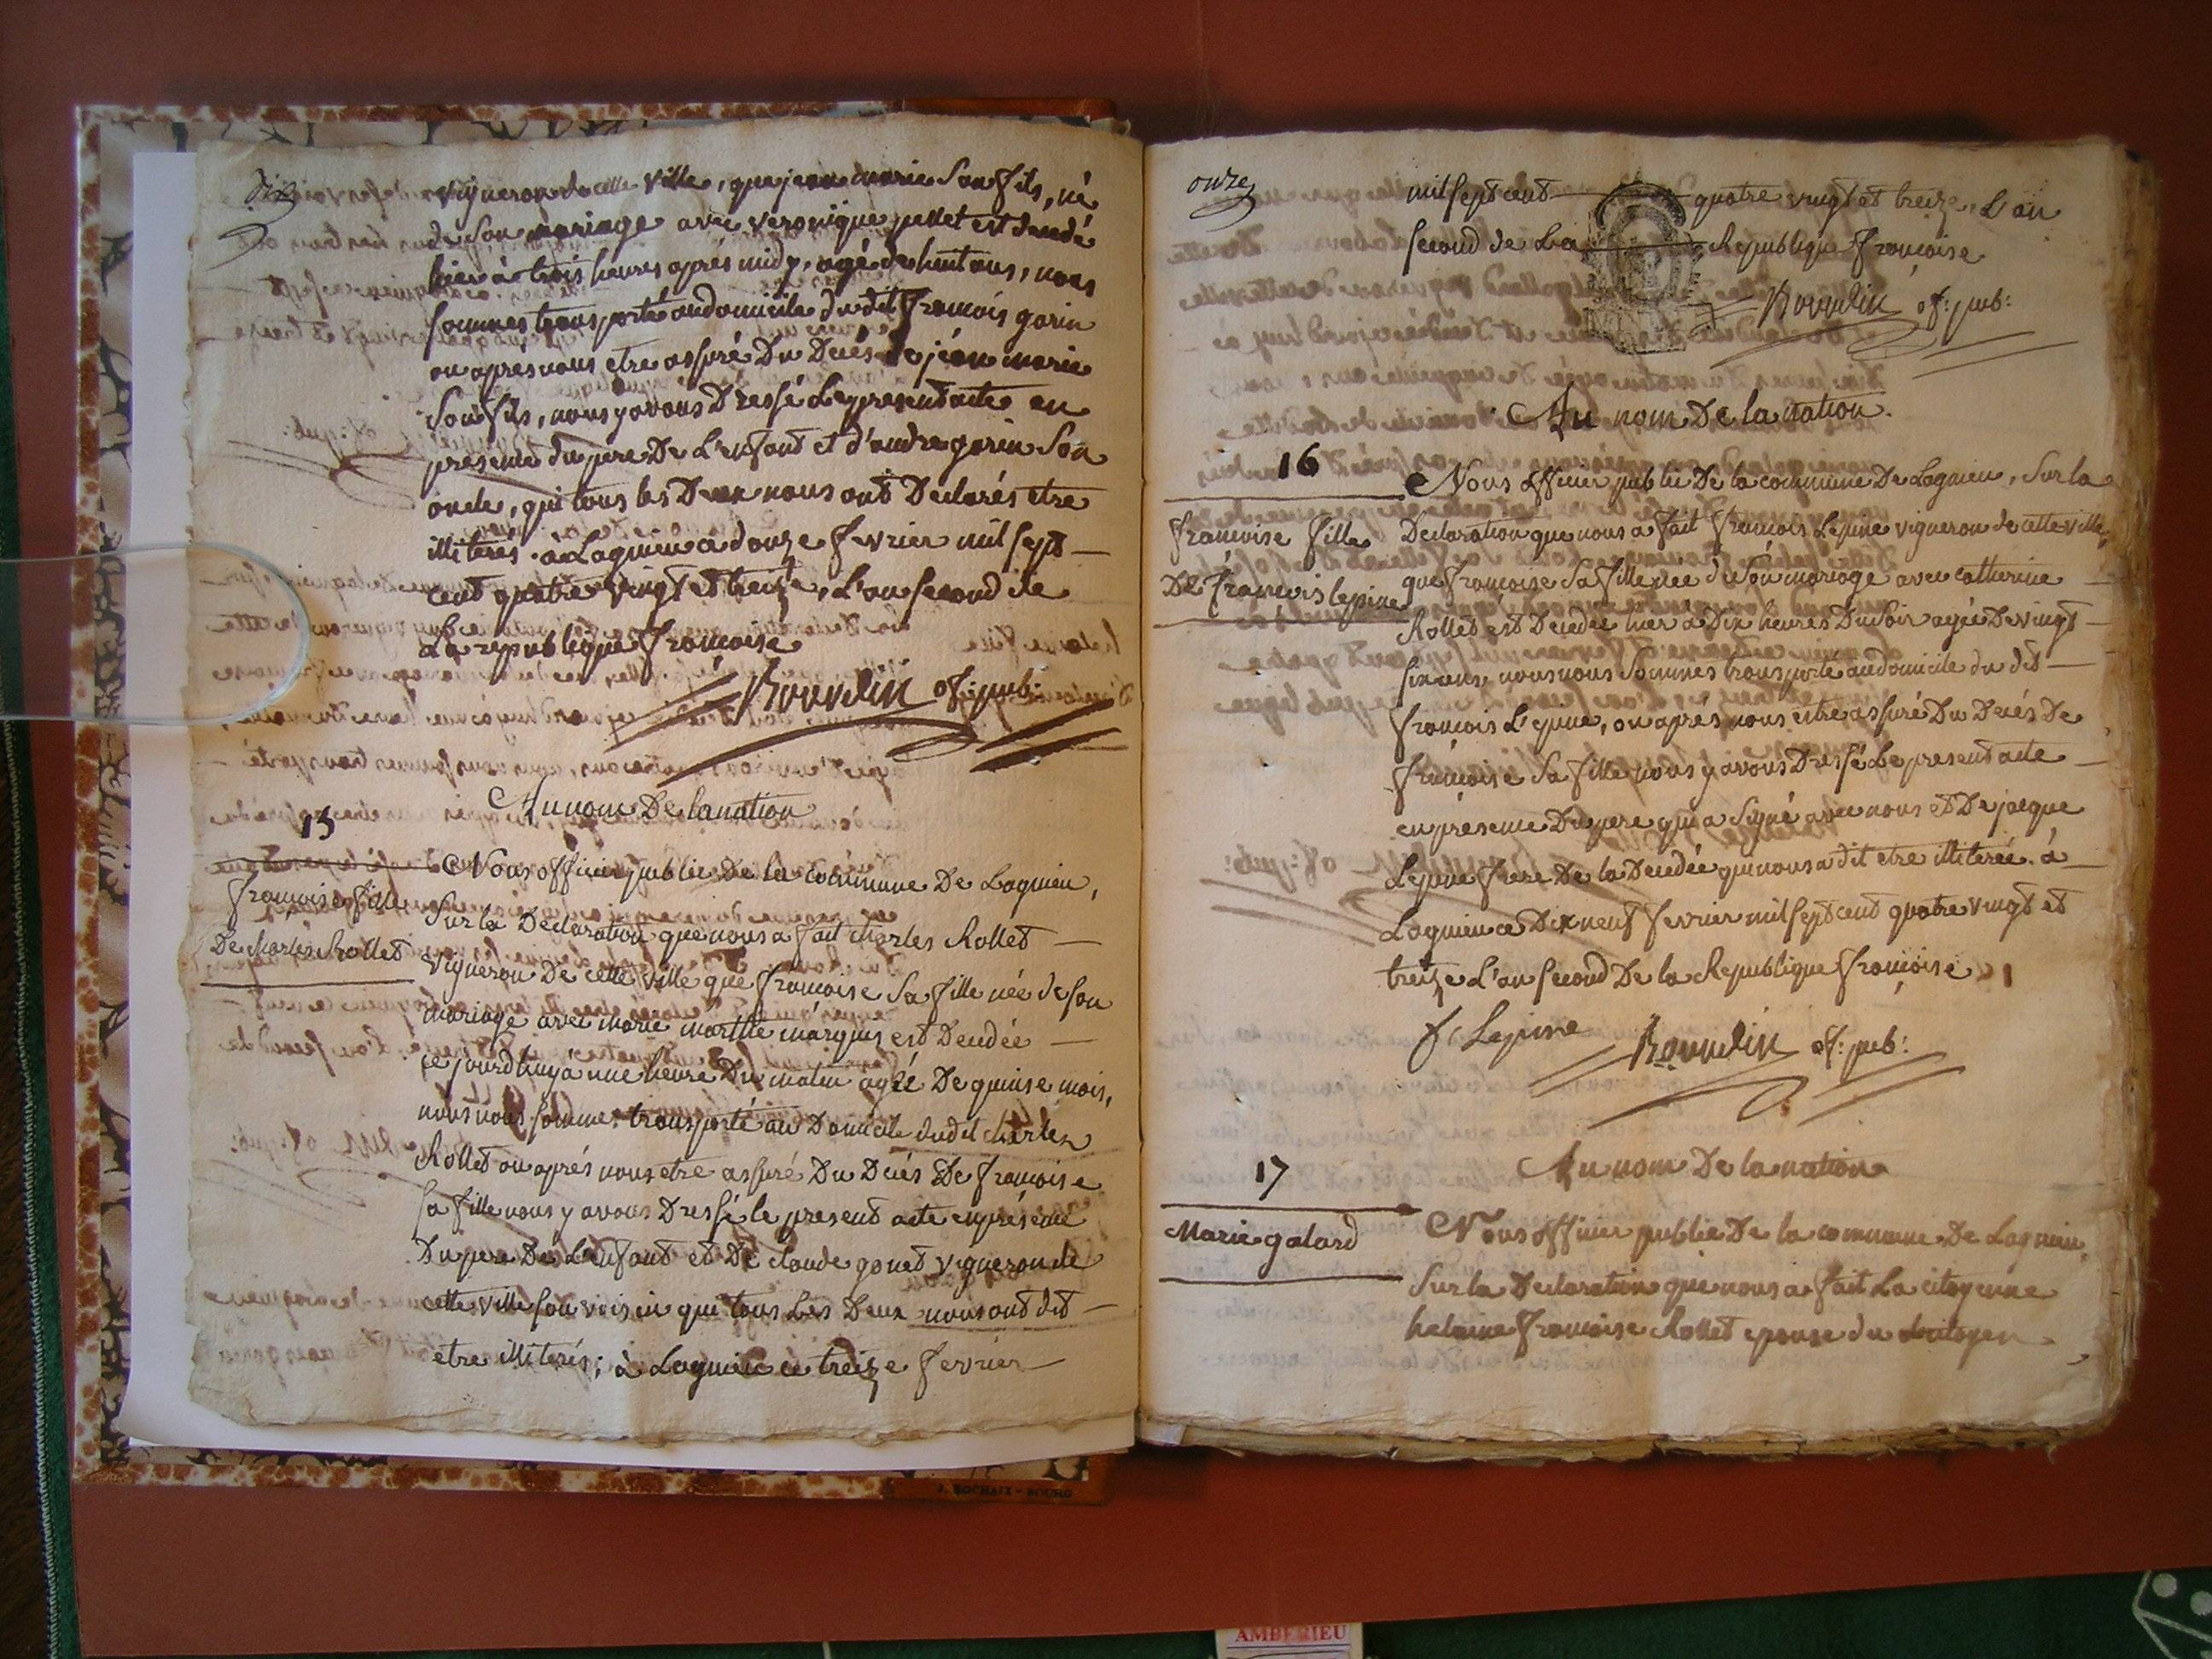 dix
vigneron de cette ville, que jean marie Son fils, né
de Son mariage avec veronique pellet est decedé
hier à trois heures aprés midy, agé de huit ans, nous
sommes transporté au domicile dudit François gorin
ou aprés nous etre assuré Du Decés de jean marie
Son fils, nous y avons Dressé Le present acte en
presence du pere De L'enfant et d'andre gorin Son
oncle, qui tous les Deux nous ont Declarés etre
illiterés. à Lagnieu ce douze fevrier mil sept
cent quatre vingt et treize, L'an second de
La republique françoise
Bourdin of: pub:
Au nom De la nation
15
françoise fille
De charles Rollet
Nous officier public De la commune De Lagnieu,
Sur la Declaration que nous a fait charles Rollet
vigneron De cette ville que françoise Sa fille née de son
mariage avec marie marthe marquis est Decedée
ce jourd'huy à une heure Du matin agée De quinse mois,
nous nous sommes transporté au Domicile dudit charles
Rollet ou aprés nous etre assuré Du Decés De françoise
Sa fille nous y avons Dressé le present acte en présence
Du pere De L'enfant et De claude gonet vigneron de
cette ville son voisin qui tous Les Deux nous ont dit
etre illiterés; à Lagnieu ce treize fevrier
onze
mil sept cent quatre vingt et treize, L'an
second de La Republique françoise
Bourdin of: pub:
Au nom De la nation.
16
françoise fille
De françois lepine
Nous officier public De la commune De Lagnieu, Sur la
Declaration que nous a fait françois Lepine vigneron de cette ville,
que françoise Sa fille née de Son mariage avec catherine
Rollet est Decedée hier à Dix heures Du Soir agée De vingt
six ans, nous nous Sommes transporté au domicile du dit
françois L'epine, ou aprés nous etre assuré Du Decés De
françoise Sa fille nous y avons Dressé Le present acte
en présence Du pere qui a Signé avec nous et De jacque
Lepine frere De la Decedée qui nous a dit etre illiteré. à
Lagnieu ce Dix neuf fevrier mil sept cent quatre vingt et
treize L'an second De la Republique françoise
f Lepine Bourdin of: pub:
Au nom De la nation
17
Marie galard
Nous officier public De la commune De Lagnieu,
Sur la Declaration que nous a fait La citoyenne
helaine françoise Rollet epouse du citoyen
J. ROCHAIX - BOURG
AMBERIEU